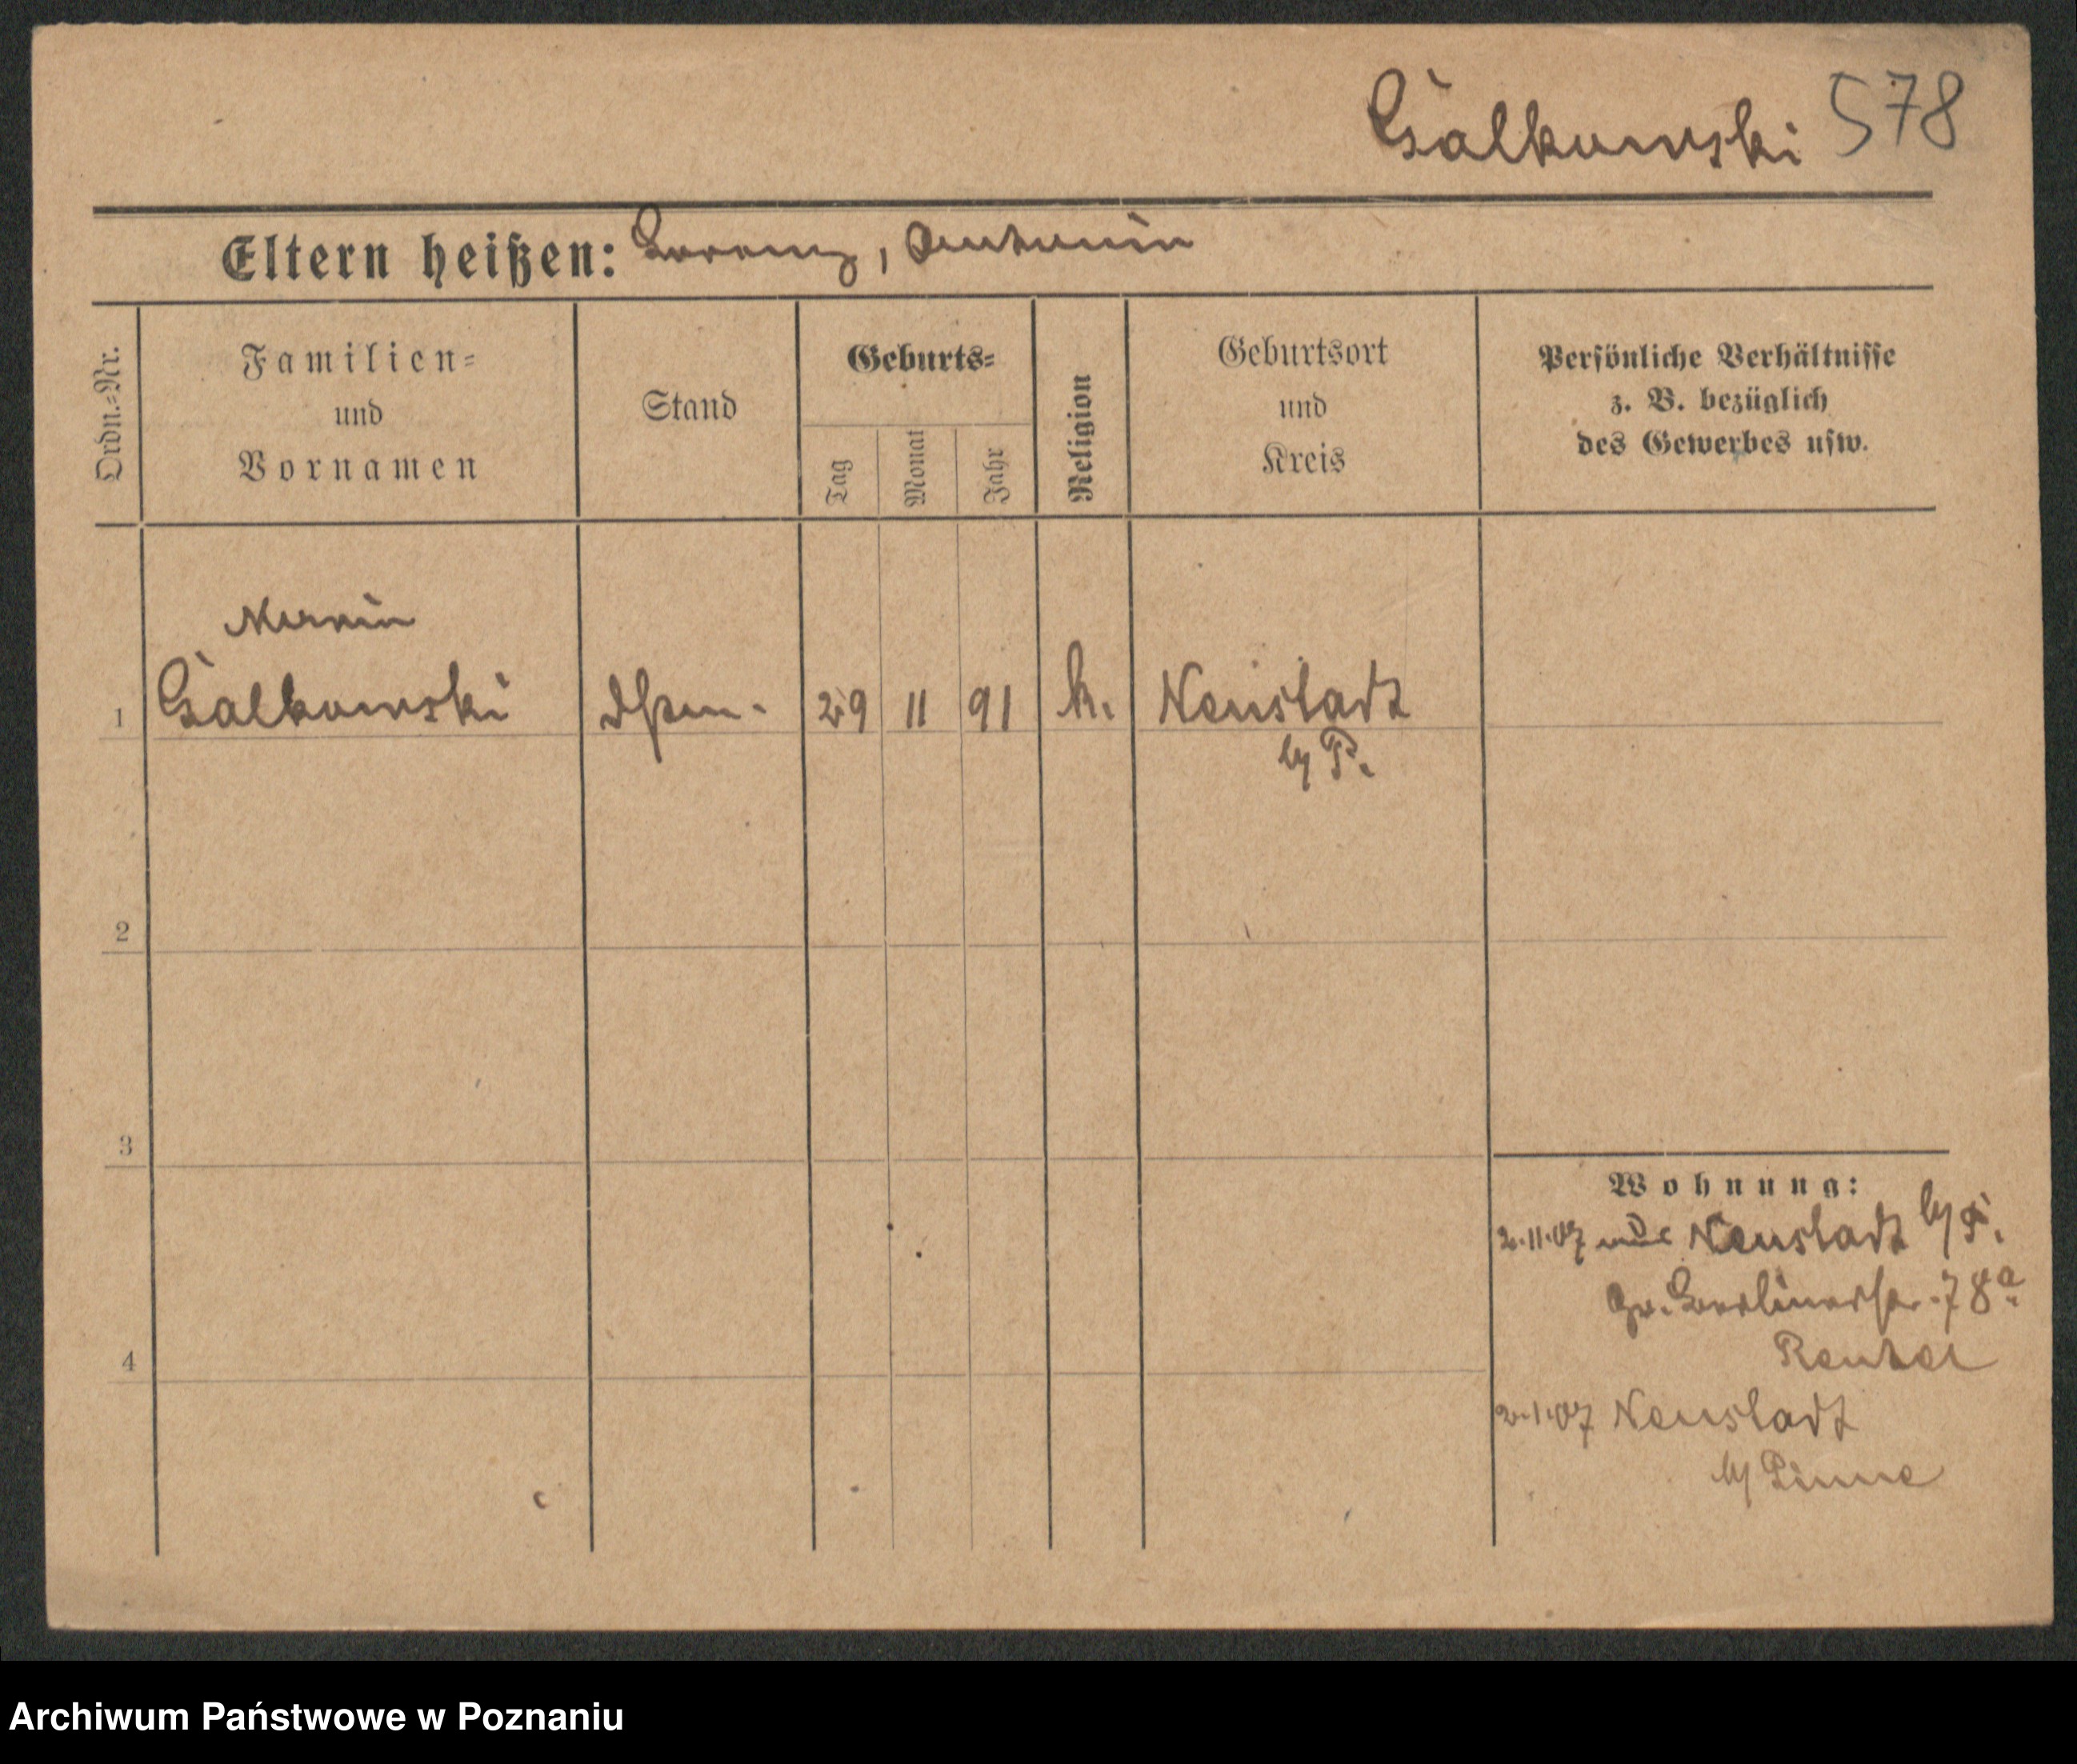 Galkowski 578
Eltern heißen: Lorenz, Antonin
Ordn.-Nr.
Familien-
und
Vornamen
Stand
Geburts-
Tag
Monat
Jahr
Religion
Geburtsort
und
Kreis
Persönliche Verhältnisse
z. B. bezüglich
des Gewerbes usw.
Marian
1 Galkowski 29 11 91 k. Neustadt
b/ P.
2
3
4
Wohnung:
2.11.07 aus Neustadt b/ P.
Gr. Berlinerstr. 78a
Rentel
2.1.07 Neustadt
b/ Pinne
Archiwum Państwowe w Poznaniu